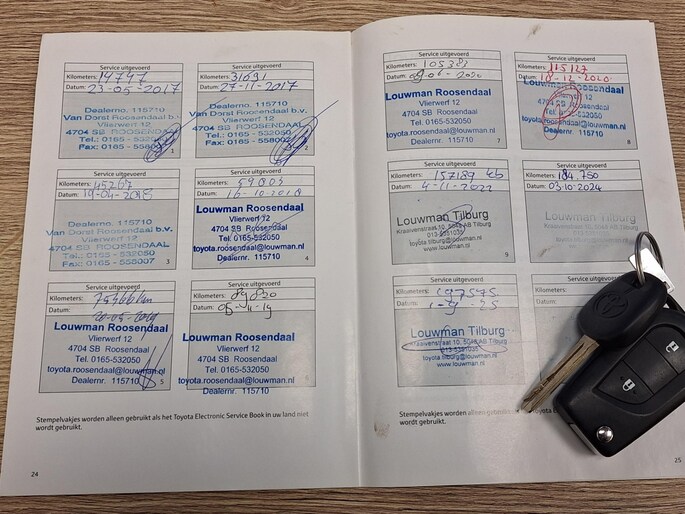 Service uitgevoerd
Kilometers: 14747
Datum: 23-05-2017
Dealerno. 115710
Van Dorst Roosendaal b.v.
Vlierwerf 12
4704 SB ROOSENDAAL
Tel.: 0165 - 532050
Fax: 0165 - 558007
1
Service uitgevoerd
Kilometers: 31691
Datum: 27-11-2017
Dealerno. 115710
Van Dorst Roosendaal b.v.
Vlierwerf 12
4704 SB ROOSENDAAL
Tel.: 0165 - 532050
Fax: 0165 - 558007
2
Service uitgevoerd
Kilometers: 45267
Datum: 19-04-2018
Dealerno. 115710
Van Dorst Roosendaal b.v.
Vlierwerf 12
4704 SB ROOSENDAAL
Tel.: 0165 - 532050
Fax: 0165 - 558007
3
Service uitgevoerd
Kilometers: 59003
Datum: 16-10-2018
Louwman Roosendaal
Vlierwerf 12
4704 SB Roosendaal
Tel. 0165-532050
toyota.roosendaal@louwman.nl
Dealernr. 115710
4
Service uitgevoerd
Kilometers:
Datum:
Louwman Roosendaal
Vlierwerf 12
4704 SB Roosendaal
Tel. 0165-532050
toyota.roosendaal@louwman.nl
Dealernr. 115710
5
Service uitgevoerd
Kilometers: 89890
Datum: 05-11-19
Louwman Roosendaal
Vlierwerf 12
4704 SB Roosendaal
Tel. 0165-532050
toyota.roosendaal@louwman.nl
Dealernr. 115710
Stempelvakjes worden alleen gebruikt als het Toyota Electronic Service Book in uw land niet
wordt gebruikt.
24
Service uitgevoerd
Kilometers: 105383
Datum: 09-06-2020
Louwman Roosendaal
Vlierwerf 12
4704 SB Roosendaal
Tel. 0165-532050
toyota.roosendaal@louwman.nl
Dealernr. 115710
7
Service uitgevoerd
Kilometers: 115127
Datum: 18-12-2020
Louwman Roosendaal
Vlierwerf 12
4704 SB Roosendaal
Tel. 0165-532050
toyota.roosendaal@louwman.nl
Dealernr. 115710
8
Service uitgevoerd
Kilometers: 157189
Datum: 4-11-2022
Louwman Tilburg
Kraaivenstraat 10, 5048 AB Tilburg
toyota.tilburg@louwman.nl
www.louwman.nl
9
Service uitgevoerd
Kilometers: 184.750
Datum: 03-10-2024
Louwman Tilburg
Service uitgevoerd
Kilometers: 197575
Datum:
Louwman Tilburg
Kraaivenstraat 10, 5048 AB Tilburg
toyota.tilburg@louwman.nl
www.louwman.nl
Service uitgevoerd
Kilometers:
Datum:
Stempelvakjes worden alleen
wordt gebruikt.
25